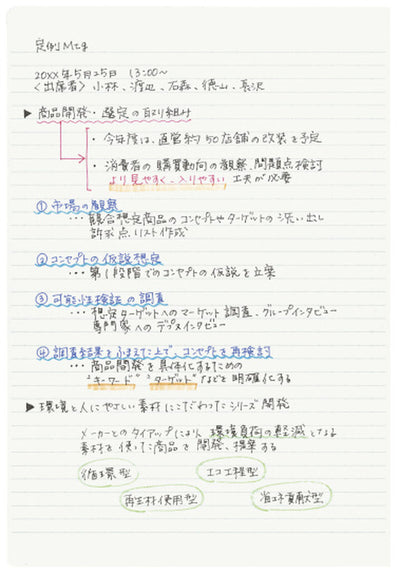 定例Mtg
20XX年5月25日 13:00~
<出席者> 小林、渡辺、石森、徳山、長沢
▶ 商品開発・選定の取り組み
・今年度は、直営約50店舗の改装を予定
・消費者の購買動向の観察、問題点検討
より見やすく、入りやすい 工夫が必要
① 市場の観察
・・・競合想定商品のコンセプトやターゲットの洗い出し
訴求点リスト作成
② コンセプトの仮説想定
・・・第1段階でのコンセプトの仮説を立案
③ 可能性検証の調査
・・・想定ターゲットへのマーケット調査、グループインタビュー
専門家へのデプスインタビュー
④ 調査結果をふまえた上で、コンセプトを再検討
・・・商品開発を具体化するための
"キーワード" "ターゲット"などを明確化する
▶ 環境と人にやさしい素材にこだわったシリーズ開発
メーカーとのタイアップにより、環境負荷の軽減となる
素材を使った商品を開発、提案する
循環型 エコ工程型
再生材使用型 省エネ貢献型